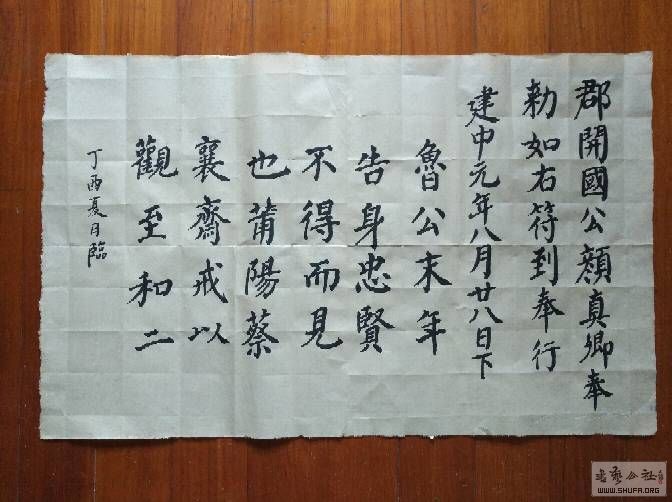 郡開國公顏真卿奉
勑如右符到奉行
建中元年八月廿八日下
魯公末年
告身忠賢
不得而見
也莆陽蔡
襄齋戒以
觀至和二
丁酉夏月臨
书艺公社
WWW.SHUFA.ORG